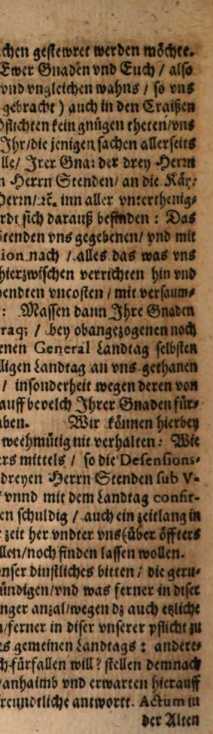 chen gestewret werden möchte.
Ewer Gnaden vnd Euch / also
vnd vngleichen wahns / so vns
gebracht ) auch in den Craißen
flichten kein gnügen theten/vns
Ihr/die jenigen sachen allerseits
lle/ Jrer Gna: der drey Herrn
n Herrn Stenden/ an die Käy:
Herrn/ꝛc. inn aller vnterthenig-
rdt sich darauß befinden : Das
Stenden vns gegebenen/ vnd mit
ion nach / alles das was vns
hierzwischen verrichten hin vnd
endten vncosten / mit versaum-
: Massen dann Ihre Gnaden
raq; / bey obangezogenen noch
nen General Landtag selbsten
ligen Landtag an vns gethanen
/ insonderheit wegen deren von
auff bevelch Ihrer Gnaden für-
aben. Wir können hierbey
weehmütig nit verhalten : Wie
rs mittels / so die Defensions-
dreyen Herrn Stenden sub V-
/ vnnd mit dem Landtag confir-
en schuldig / auch ein zeitlang in
zeit her vndter vns(über öffters
llen/noch finden lassen wollen.
nser dinstliches bitten / die geru-
ündigen/vnd was ferner in diser
nger anzal/wegen dz auch etzliche
n/ferner in diser vnserer pflicht zu
s gemeinen Landtags : andere
ch fürfallen will? stellen demnach
anhaimb vnd erwarten hierauff
reundtliche antwortt. Actum in
der Alten